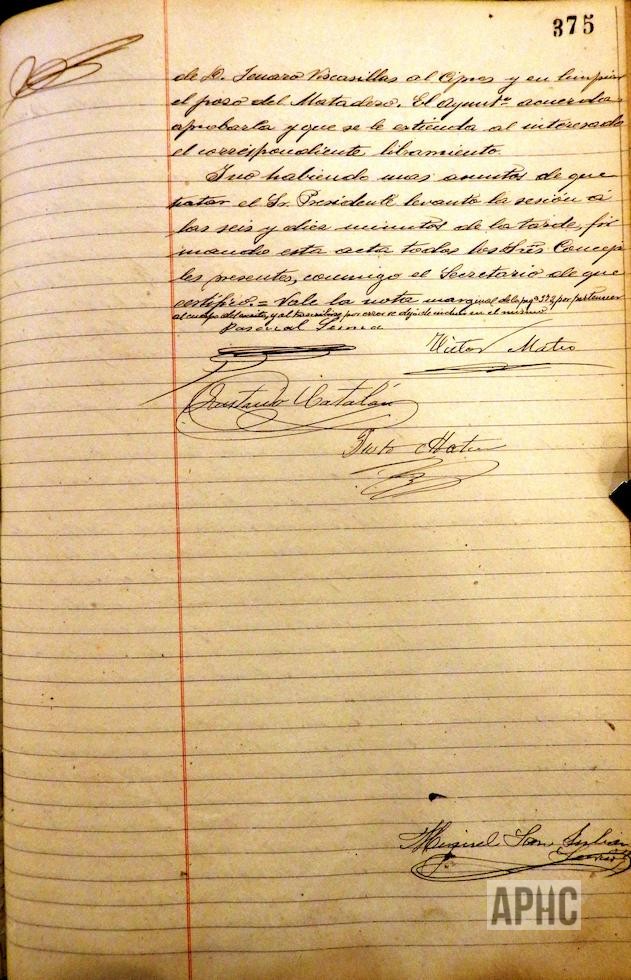 375
de D. Jenaro Viscasillas al Cipres y en limpiar
el poso del Matadero. El ayuntº acuerda
aprobarla y que se le estienda al interesado
el correspondiente libramiento.
Y no habiendo mas asuntos de que
tratar el Sr. Presidente levanto la sesión á
las seis y diez minutos de la tarde, fir
mando esta acta todos los Srēs Conceja
les presentes, conmigo el Secretario de que
certifico. = Vale la nota marginal de la pagª 372, por pertenecer
al cuerpo del acta, y al transcribirse, por error se dejo de incluir en el mismo
Pascual
Victor Mateo
Gustavo Catalán
Mateo
Miguel San Julian
APHC